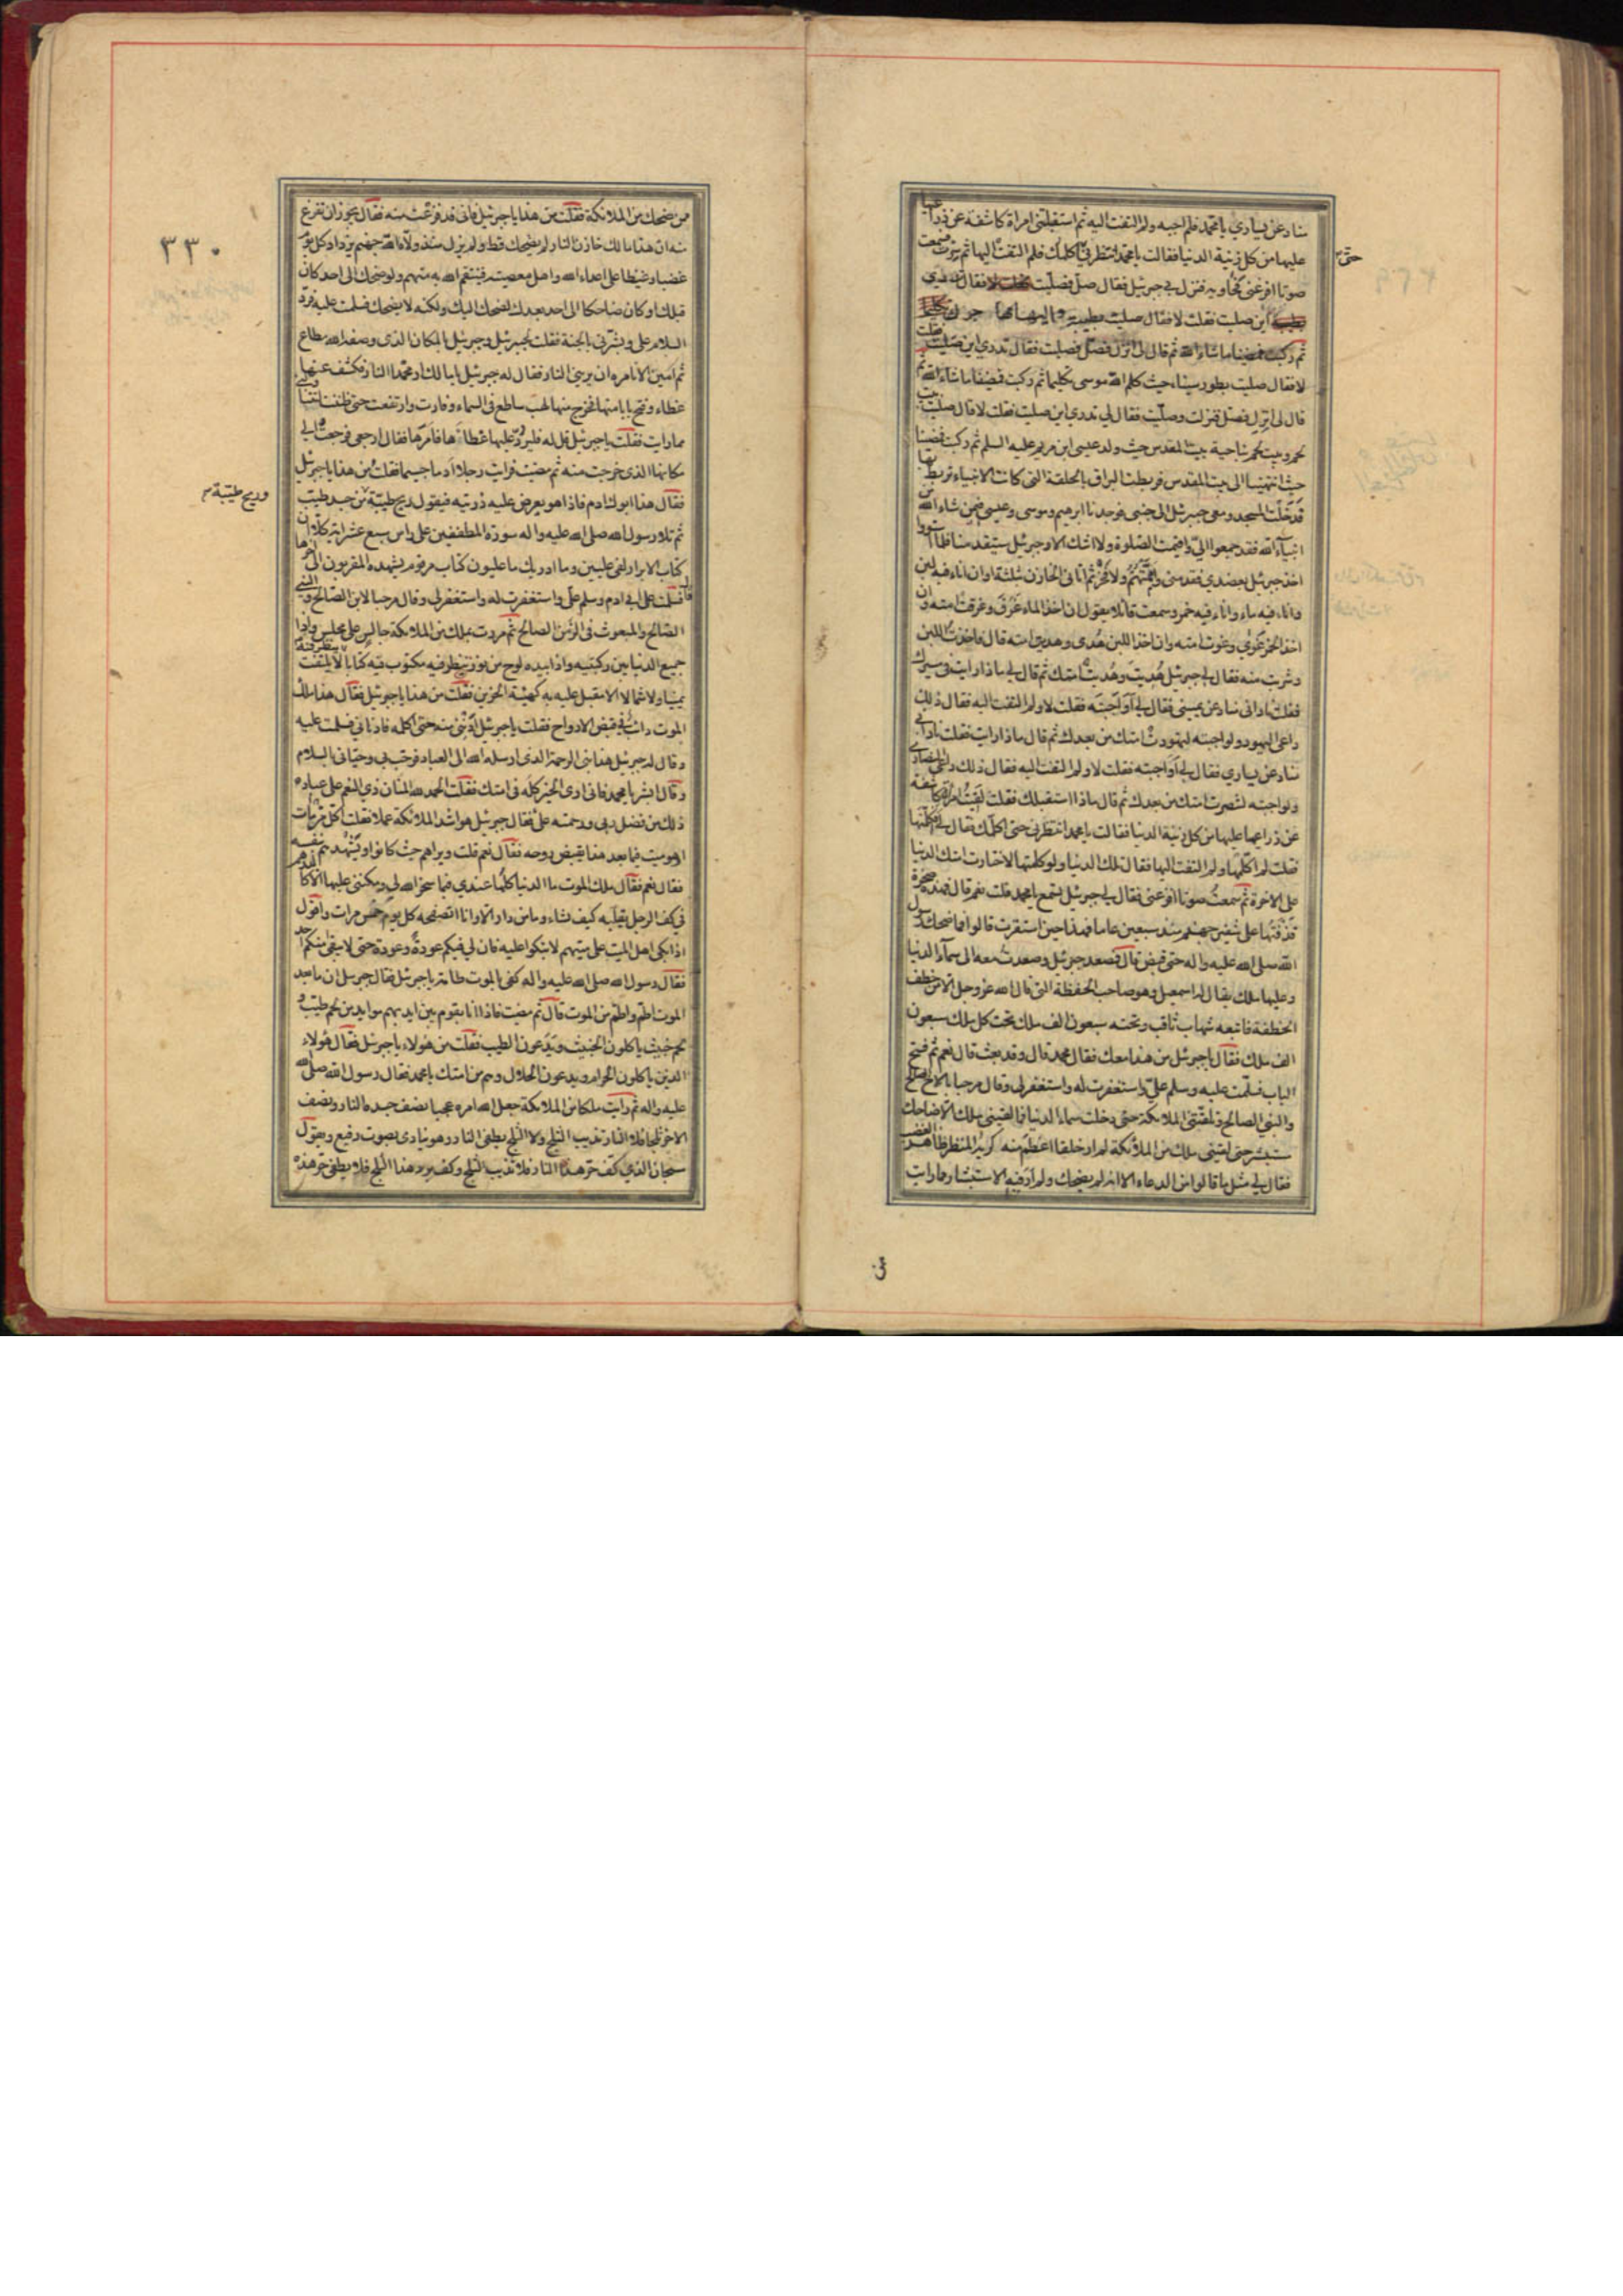 مناد عن يساري يا محمد فلم اجبه ولم التفت اليه ثم استقبلتني امراة كاشفة عن ذراعيها
عليها من كل زينة الدنيا فقالت يا محمد انتظرني اكلمك فلم التفت اليها ثم سرت فسمعت
حتى
صوتا افزعني فجاوزته فنزل بي جبرئيل فقال صل فصليت فقال تدري
اين صليت فقلت لا فقال صليت بطيبة واليها مهاجرك
ثم ركبت فمضينا ما شاء الله ثم قال لي انزل فصل فصليت فقال تدري اين صليت فقلت
لا فقال صليت بطور سيناء حيث كلم الله موسى تكليما ثم ركبت فمضينا ما شاء الله ثم
قال لي انزل فصل فنزلت وصليت فقال لي تدري اين صليت فقلت لا قال صليت
بيت لحم وبيت لحم بناحية بيت المقدس حيث ولد عيسى ابن مريم عليه السلم ثم ركبت فمضينا
حيث انتهينا الى بيت المقدس فربطت البراق بالحلقة التي كانت الانبياء تربط بها
فدخلت المسجد ومعي جبرئيل الى جنبي فوجدنا ابرهيم وموسى وعيسى فيمن شاء الله
انبياء الله فقد جمعوا الي واقيمت الصلوة ولا اشك الا وجبرئيل سيتقدمنا فلما استووا
اخذ جبرئيل بعضدي فقدمني واممتهم ولا فخر ثم اتاني الخازن بثلثة اوان اناء فيه لبن
واناء فيه ماء واناء فيه خمر وسمعت قائلا يقول ان اخذ الماء غرق وغرقت امته وان
اخذ الخمر غوي وغوت امته وان اخذ اللبن هدى وهديت امته قال فاخذت اللبن
وشربت منه فقال لي جبرئيل هديت وهديت امتك ثم قال لي ماذا رايت في مسيرك
فقلت ناداني مناد عن يميني فقال لي او اجبته فقلت لا ولم التفت اليه فقال ذلك
داعي اليهود ولو اجبته لتهودت امتك من بعدك ثم قال ماذا رايت فقلت ناداني
مناد عن يساري فقال لي او اجبته فقلت لا ولم التفت اليه فقال ذلك داعي النصارى
ولو اجبته لتنصرت امتك من بعدك ثم قال ماذا استقبلك فقلت لقيت امراة كاشفة
عن ذراعيها عليها من كل زينة الدنيا فقالت يا محمد انتظرني حتى اكلمك فقال لي افكلمتها
فقلت لم اكلمها ولم التفت اليها فقال تلك الدنيا ولو كلمتها لاختارت امتك الدنيا
على الاخرة ثم سمعت صوتا افزعني فقال لي جبرئيل تسمع يا محمد قلت نعم قال هذه صخرة
قذفتها على شفير جهنم منذ سبعين عاما فهذا حين استقرت قالوا فما ضحك رسول
الله صلى الله عليه واله حتى قبض قال فصعد جبرئيل وصعدت معه الى سماء الدنيا
وعليها ملك يقال له اسمعيل وهو صاحب الخطفة التي قال الله عز وجل الا من خطف
الخطفة فاتبعه شهاب ثاقب وتحته سبعون الف ملك تحت كل ملك سبعون
الف ملك فقال يا جبرئيل من هذا معك فقال محمد قال وقد بعث قال نعم ثم فتح
الباب فسلمت عليه وسلم علي واستغفرت له واستغفر لي وقال مرحبا بالاخ الصالح
والنبي الصالح وتلقتني الملائكة حتى دخلت سماء الدنيا فما لقيني ملك الا ضاحك
مستبشر حتى لقيني ملك من الملائكة لم ار خلقا اعظم منه كريه المنظر ظاهر الغضب
فقال لي مثل ما قالوا من الدعاء الا انه لم يضحك ولم ار فيه الاستبشار وما رايت
من
٣٣٠
ممن ضحك من الملائكة فقلت من هذا يا جبرئيل فاني قد فزعت منه فقال يجوز ان تفزع
منه ان هذا مالك خازن النار لم يضحك قط ولم يزل منذ ولاه الله جهنم يزداد كل يوم
غضبا وغيظا على اعداء الله واهل معصيته فينتقم الله به منهم ولو ضحك الى احد كان
قبلك او كان ضاحكا الى احد بعدك لضحك اليك ولكنه لا يضحك فسلمت عليه فرد
السلام علي وبشرني بالجنة فقلت لجبرئيل وجبرئيل بالمكان الذي وصفه الله مطاع
ثم امين الا تامره ان يريني النار فقال له جبرئيل يا مالك ار محمدا النار فكشف عنها
غطاء وفتح بابا منها فخرج منها لهب ساطع في السماء وفارت وارتفعت حتى ظننت ليتناولني
مما رايت فقلت يا جبرئيل قل له فليرد عليها غطاءها فامرها فقال ارجعي فرجعت الى
مكانها الذي خرجت منه ثم مضيت فرايت رجلا ادما جسيما فقلت من هذا يا جبرئيل
فقال هذا ابوك ادم فاذا هو يعرض عليه ذريته فيقول ريح طيبة من جسد طيب
وريح طيبة
ثم تلا رسول الله صلى الله عليه واله سورة المطففين على راس سبع عشر اية كلا ان
كتاب الابرار لفي عليين وما ادريك ما عليون كتاب مرقوم يشهده المقربون الى اخرها
قال فسلمت على ابي ادم وسلم علي واستغفرت له واستغفر لي وقال مرحبا بالابن الصالح والنبي
الصالح والمبعوث في الزمن الصالح ثم مررت بملك من الملائكة جالس على مجلس واذا
جميع الدنيا بين ركبتيه واذا بيده لوح من نور ينظر فيه مكتوب فيه كتابا لا يلتفت
يمينا ولا شمالا الا مقبل عليه به كهيئة الحزين فقلت من هذا يا جبرئيل فقال هذا ملك
الموت دائب في قبض الارواح فقلت يا جبرئيل ادنني منه حتى اكلمه فادناني فسلمت عليه
وقال له جبرئيل هذا نبي الرحمة الذي ارسله الله الى العباد فرحب بي وحياني بالسلام
وقال ابشر يا محمد فاني ارى الخير كله في امتك فقلت الحمد لله المنان ذي النعم على عباده
ذلك من فضل ربي ورحمته علي فقال جبرئيل هو اشد الملائكة عملا فقلت اكل من مات
او هو ميت فيما بعد هذا يقبض روحه فقال نعم قلت ويراهم حيث كانوا ويشهدهم بنفسه
فقال نعم فقال ملك الموت ما الدنيا كلها عندي فيما سخر الله لي ومكنني عليها الا كالدرهم
في كف الرجل يقلبه كيف يشاء وما من دار الا وانا اتصفحه كل يوم خمس مرات واقول
اذا بكى اهل الميت على ميتهم لا تبكوا عليه فان لي فيكم عودة وعودة حتى لا يبقى منكم احد
فقال رسول الله صلى الله عليه واله كفى بالموت طامة يا جبرئيل فقال جبرئيل ان ما بعد
الموت اطم واطم من الموت قال ثم مضيت فاذا انا بقوم بين ايديهم موايد من لحم طيب و
لحم خبيث ياكلون الخبيث ويدعون الطيب فقلت من هؤلاء يا جبرئيل فقال هؤلاء
الذين ياكلون الحرام ويدعون الحلال وهم من امتك يا محمد فقال رسول الله صلى الله
عليه واله ثم رايت ملكا من الملائكة جعل الله امره عجبا نصف جسده النار ونصف
الاخر ثلجا فلا النار تذيب الثلج ولا الثلج يطفئ النار وهو ينادي بصوت رفيع ويقول
سبحان الذي كف حر هذا النار فلا تذيب الثلج وكف برد هذا الثلج فلا يطفئ حر هذه